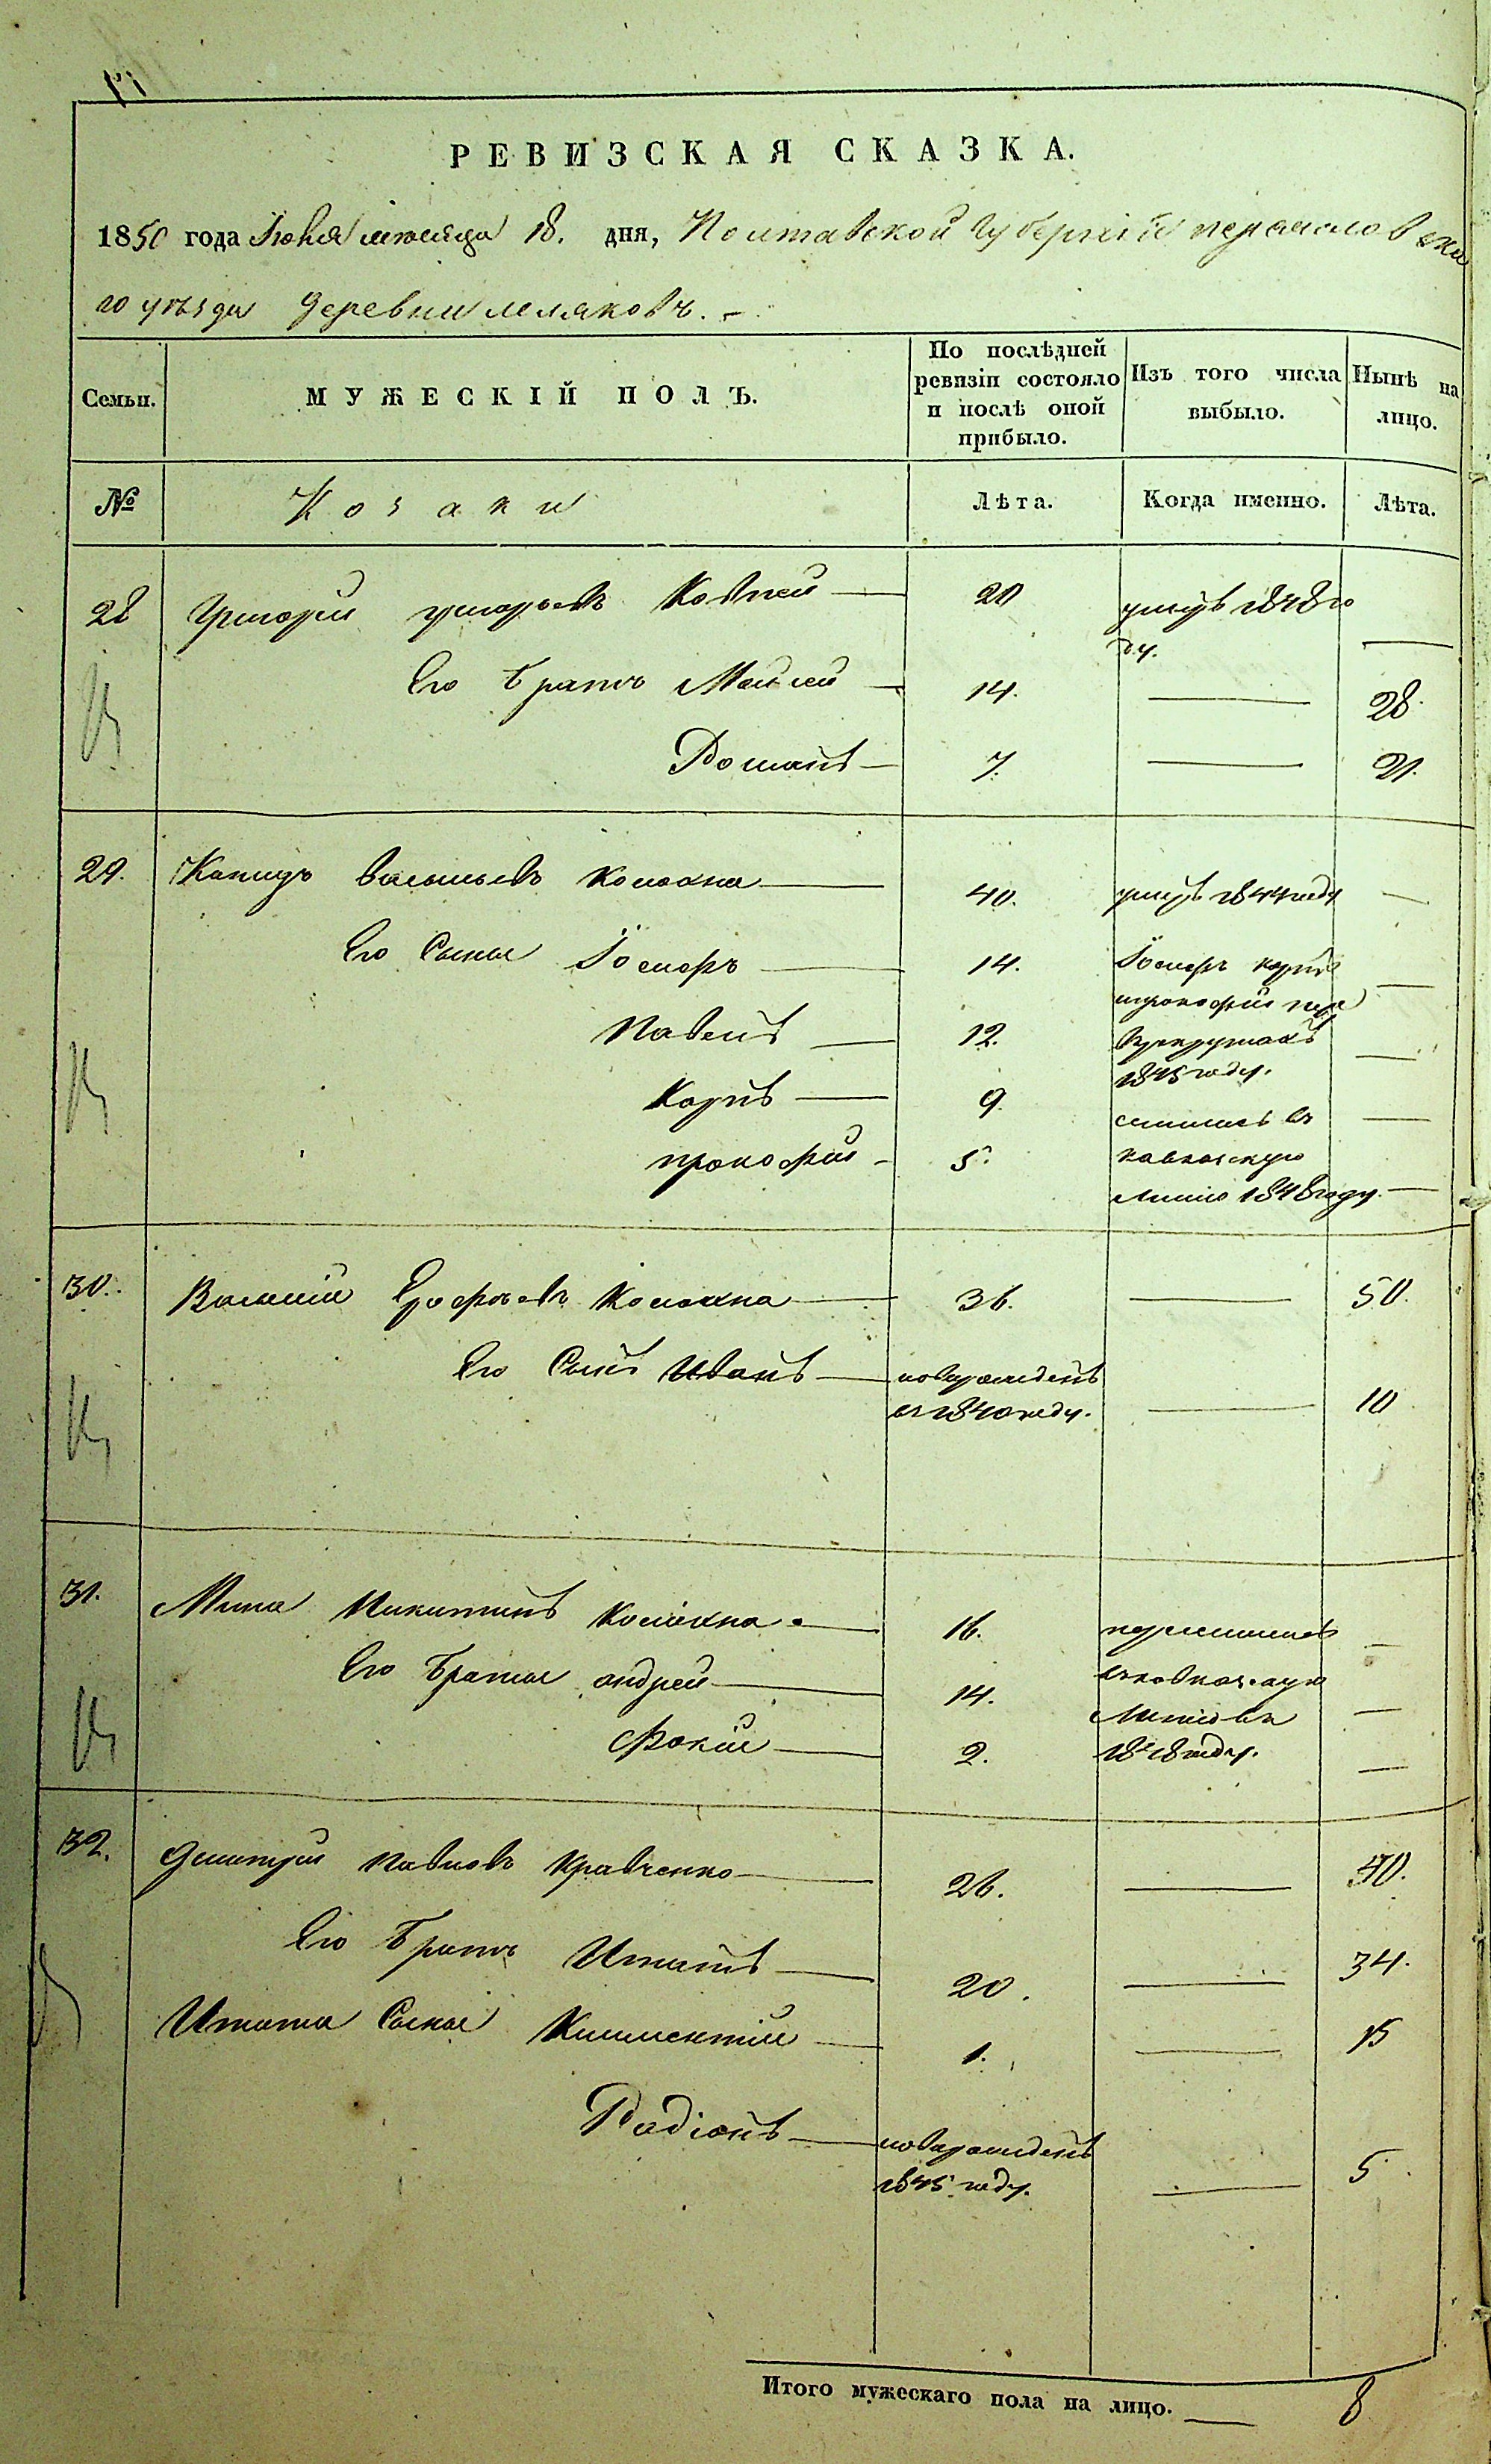 РЕВИЗСКАЯ СКАЗКА.
1850 года Іюня месяца 18. дня, Полтавской Губерніи переяслов ска
го уѣзда деревни леляковъ.
Семьи.
МУЖЕСКІЙ ПОЛЪ.
По послѣдней ревизіи состояло и послѣ оной прибыло.
Изъ того числа выбыло.
Нынѣ на лицо.
№
Козаки
Лѣта.
Когда именно.
Лѣта.
28 Григорий григорьевъ 20 умеръ 1848 го
ду.
Его братъ 14. 28.
Романъ 7. 21.
29. васильевъ 40. умеръ 1844 году
Его Сыны Іосифъ 14. Іосифъ карпъ
Павелъ 12. прокофий
Карпъ 9. 1845 году.
прокофий 5. въ
кавказскую
Линию 1848 году.
30. Василий Ерофеевъ 36. 50.
Его Сынъ Иванъ новорожденъ
въ 1840 году. 10
31. Мина Никитинъ 16.
Его братья андрей 14. въ кавказскую
Фокій 2. Линію въ
1848 году.
32. Дмитрий Павловъ Кравченко 26. 40.
Его братъ Игнатъ 20. 34.
Игната Сыны Климентий 1. 15
Радіонъ новорожденъ
1845 году. 5.
Итого мужескаго пола на лицо. 8